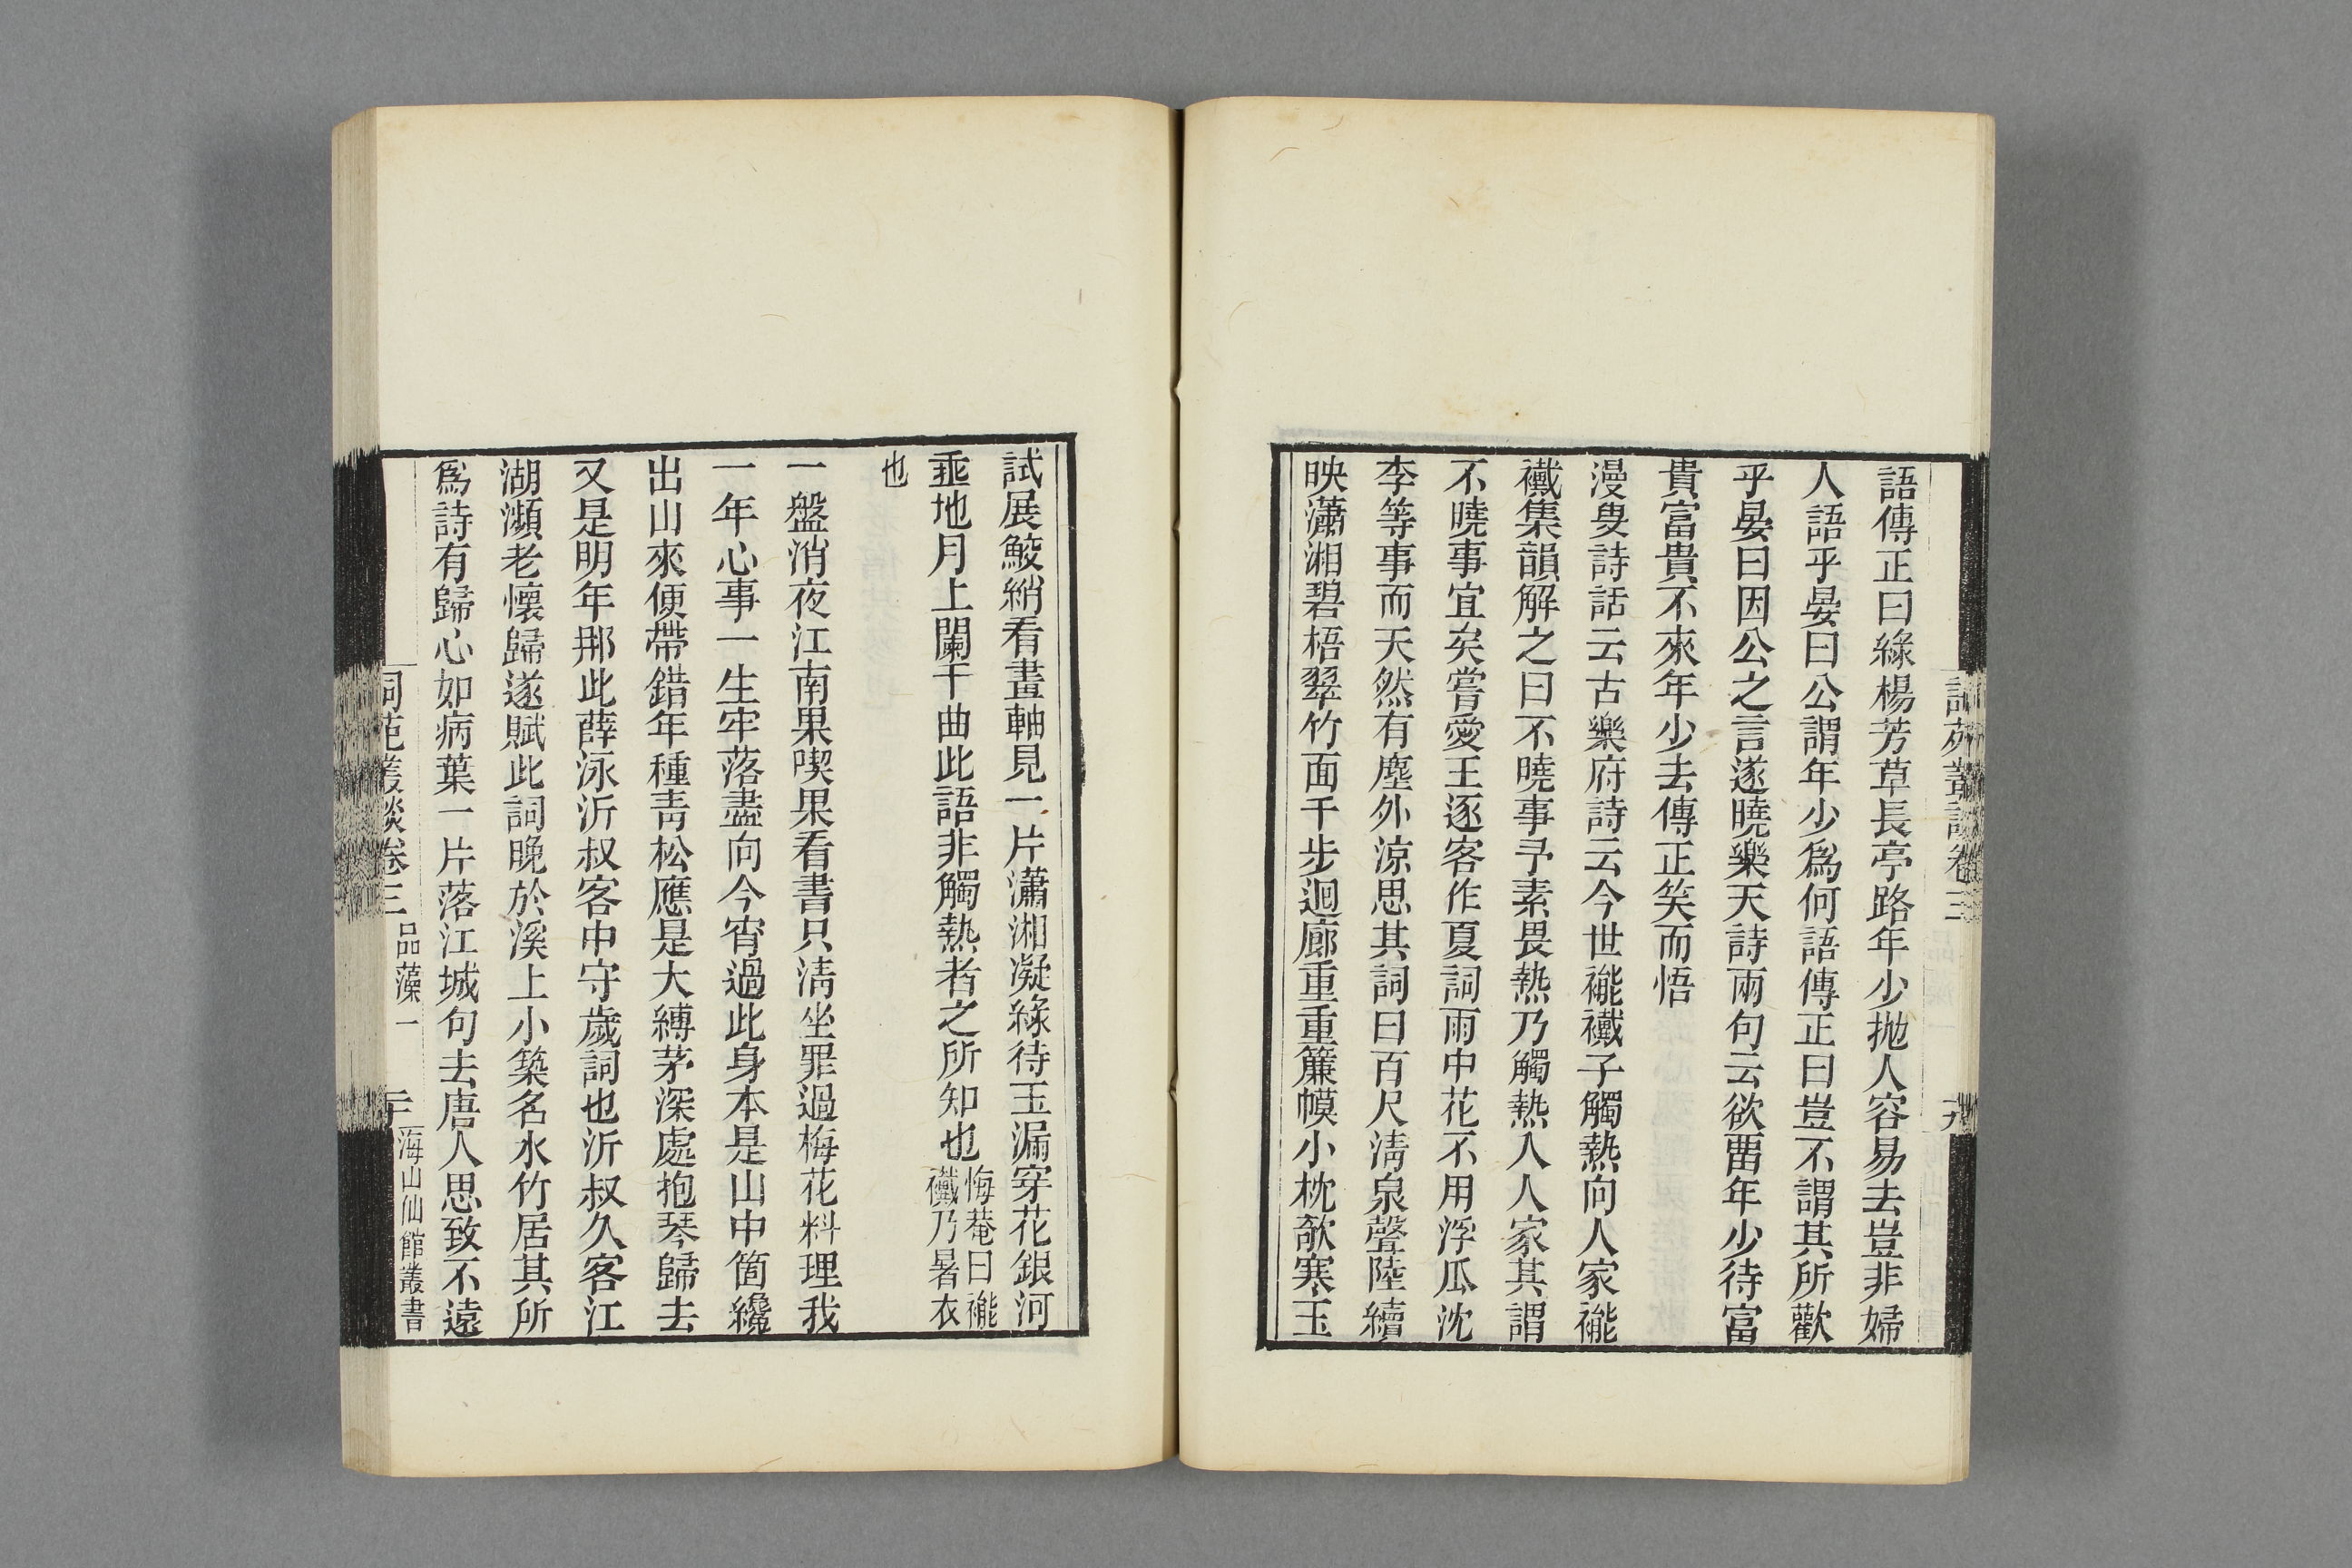 語傳正曰綠楊芳草長亭路年少拋人容易去豈非婦
人語乎晏曰公謂年少爲何語傳正曰豈不謂其所歡
乎晏曰因公之言遂曉樂天詩兩句云欲畱年少待富
貴富貴不來年少去傳正笑而悟
漫叟詩話云古樂府詩云今世褦襶子觸熱向人家褦
襶集韻解之曰不曉事予素畏熱乃觸熱入人家其謂
不曉事宜矣嘗愛王逐客作夏詞雨中花不用浮瓜沈
李等事而天然有塵外涼思其詞曰百尺淸泉聲陸續
映瀟湘碧梧翠竹面千步迴廊重重簾幙小枕欹寒玉
試展鮫綃看畫軸見一片瀟湘凝綠待玉漏穿花銀河
垂地月上闌干曲此語非觸熱者之所知也
悔菴曰褦
襶乃暑衣
也
一盤消夜江南果喫果看書只淸坐罪過梅花料理我
一年心事一生牢落盡向今宵過此身本是山中箇纔
出山來便帶錯年種靑松應是大縛茅深處抱琴歸去
又是明年那此薛泳沂叔客中守歲詞也沂叔久客江
湖瀕老懷歸遂賦此詞晚於溪上小築名水竹居其所
爲詩有歸心如病葉一片落江城句去唐人思致不遠
詞苑叢談卷三
品藻一
海山仙館叢書